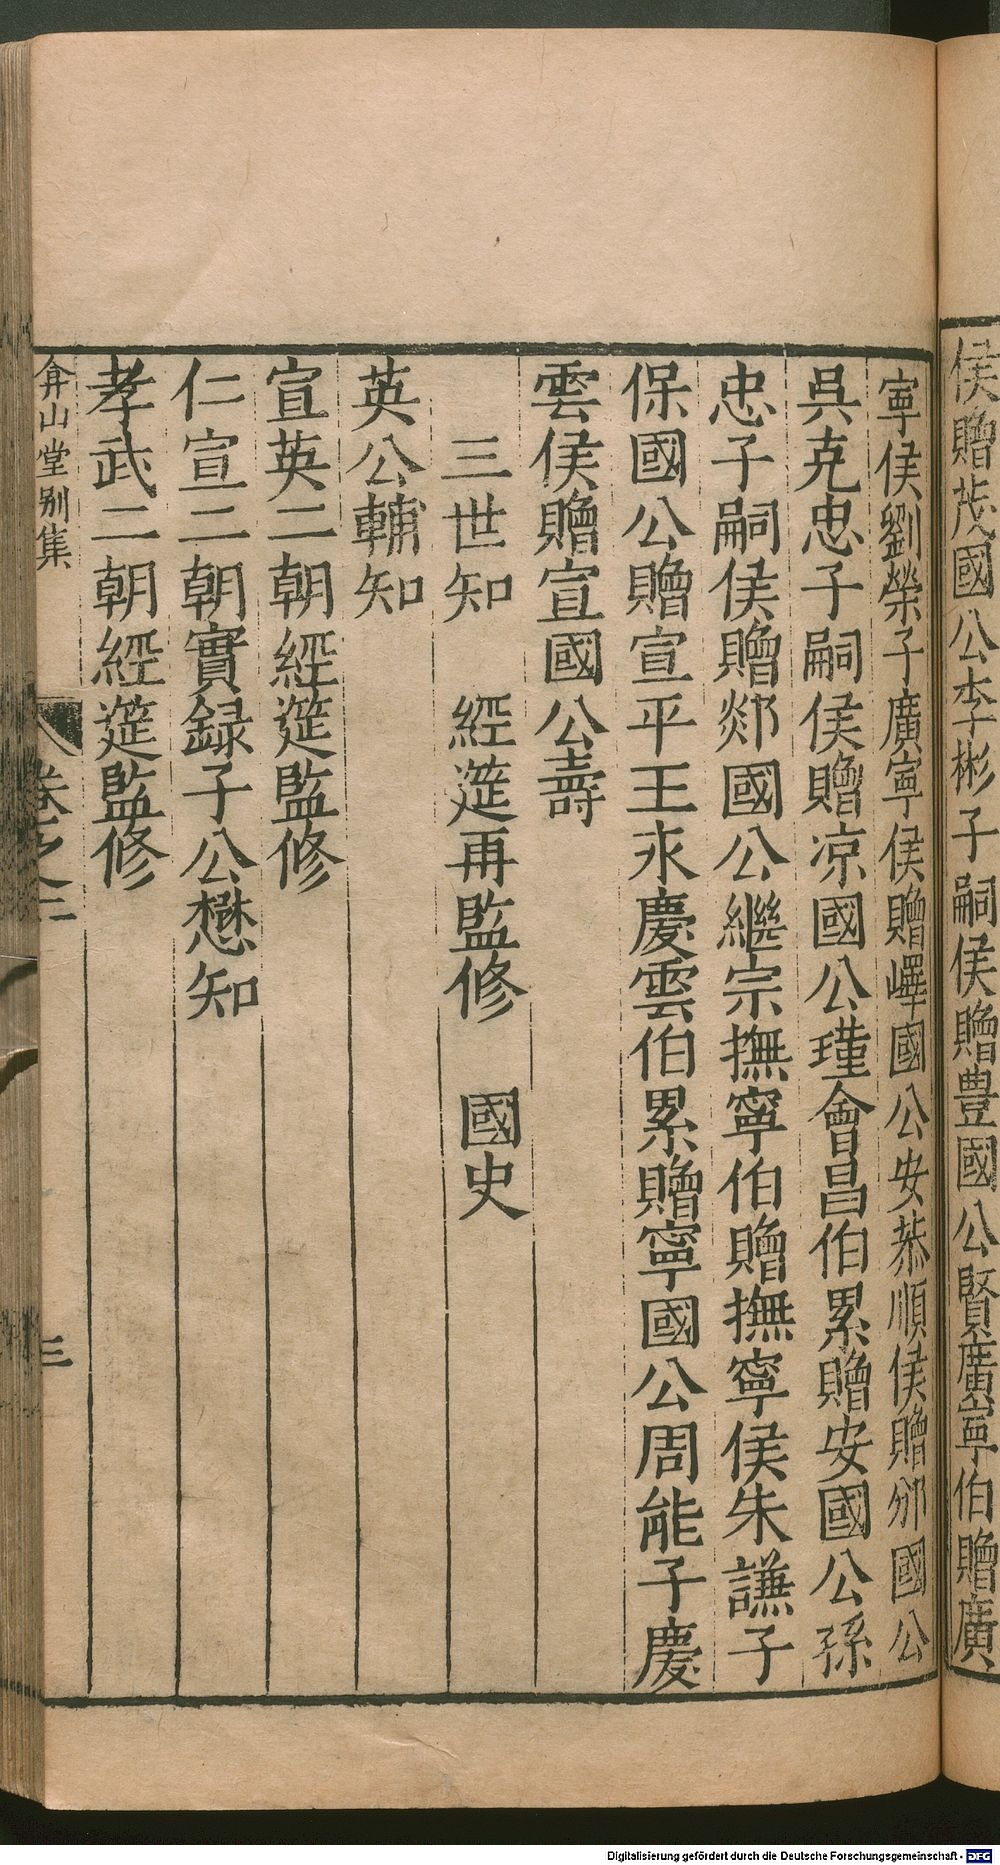 侯贈茂國公李彬子嗣侯贈豊國公賢廣寧伯贈廣
寧侯劉榮子廣寧侯贈嶧國公安恭順侯贈邠國公
吳克忠子嗣侯贈涼國公瑾會昌伯累贈安國公孫
忠子嗣侯贈郯國公繼宗撫寧伯贈撫寧侯朱謙子
保國公贈宣平王永慶雲伯累贈寧國公周能子慶
雲侯贈宣國公壽
三世知　經筵再監修　國史
英公輔知
宣英二朝經筵監修
仁宣二朝實録子公懋知
孝武二朝經筵監修
弇山堂别集
卷之二
三
Digitalisierung gefördert durch die Deutsche Forschungsgemeinschaft - DFG